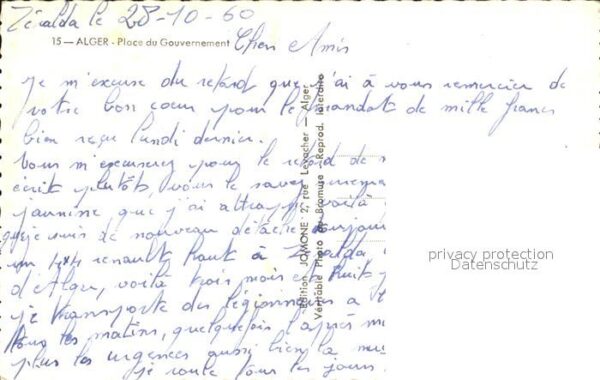 Zéralda le 28-10-60
15 — ALGER - Place du Gouvernement
Chers Amis
Je m'excuse du retard que j'ai à vous remercier de
votre bon coeur pour le mandat de mille francs
bien reçu lundi dernier.
Vous m'excuserez pour le retard de
écrit plutôt, vous le savez
jaunisse, que j'ai attrapé voilà
que je suis de nouveau détaché
un 4x4 renault haut à Zéralda
d'Alger, voilà trois mois et huit
je transporte des légionnaires a
tous les matins, quelquefois l'après mi
plus les urgences aussi bien la nui
je roule tous les jours
Edition JOMONE 2, rue Levacher Alger
Véritable Photo au Bromure - Reprod. interdite
privacy protection
Datenschutz